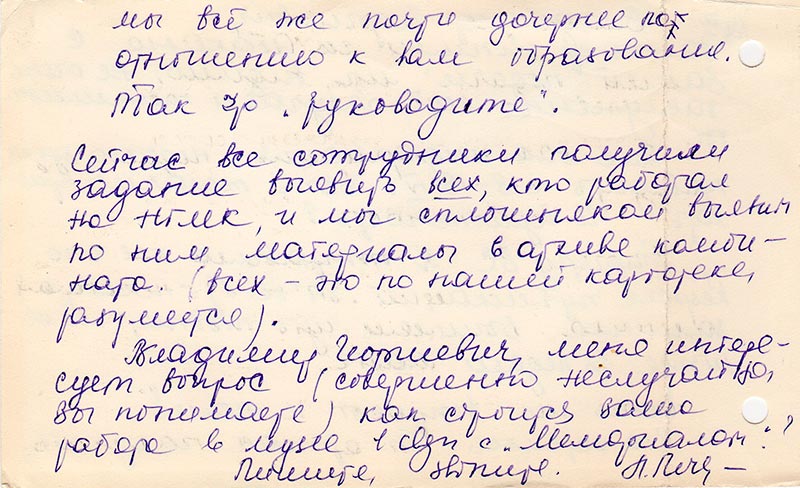 мы всё же почти дочернее по
отношению к вам образование.
Так что „руководите".
Сейчас все сотрудники получили
задание выявить всех, кто работал
на НГМК, и мы сплошняком выявим
по ним материалы в архиве комби-
ната. (всех – это по нашей картотеке,
разумеется).
Владимир Георгиевич, меня интере-
сует вопрос (совершенно неслучайно,
вы понимаете) как строится ваша
работа в музее в связи с „Мемориалом"?
Пишите, звоните.